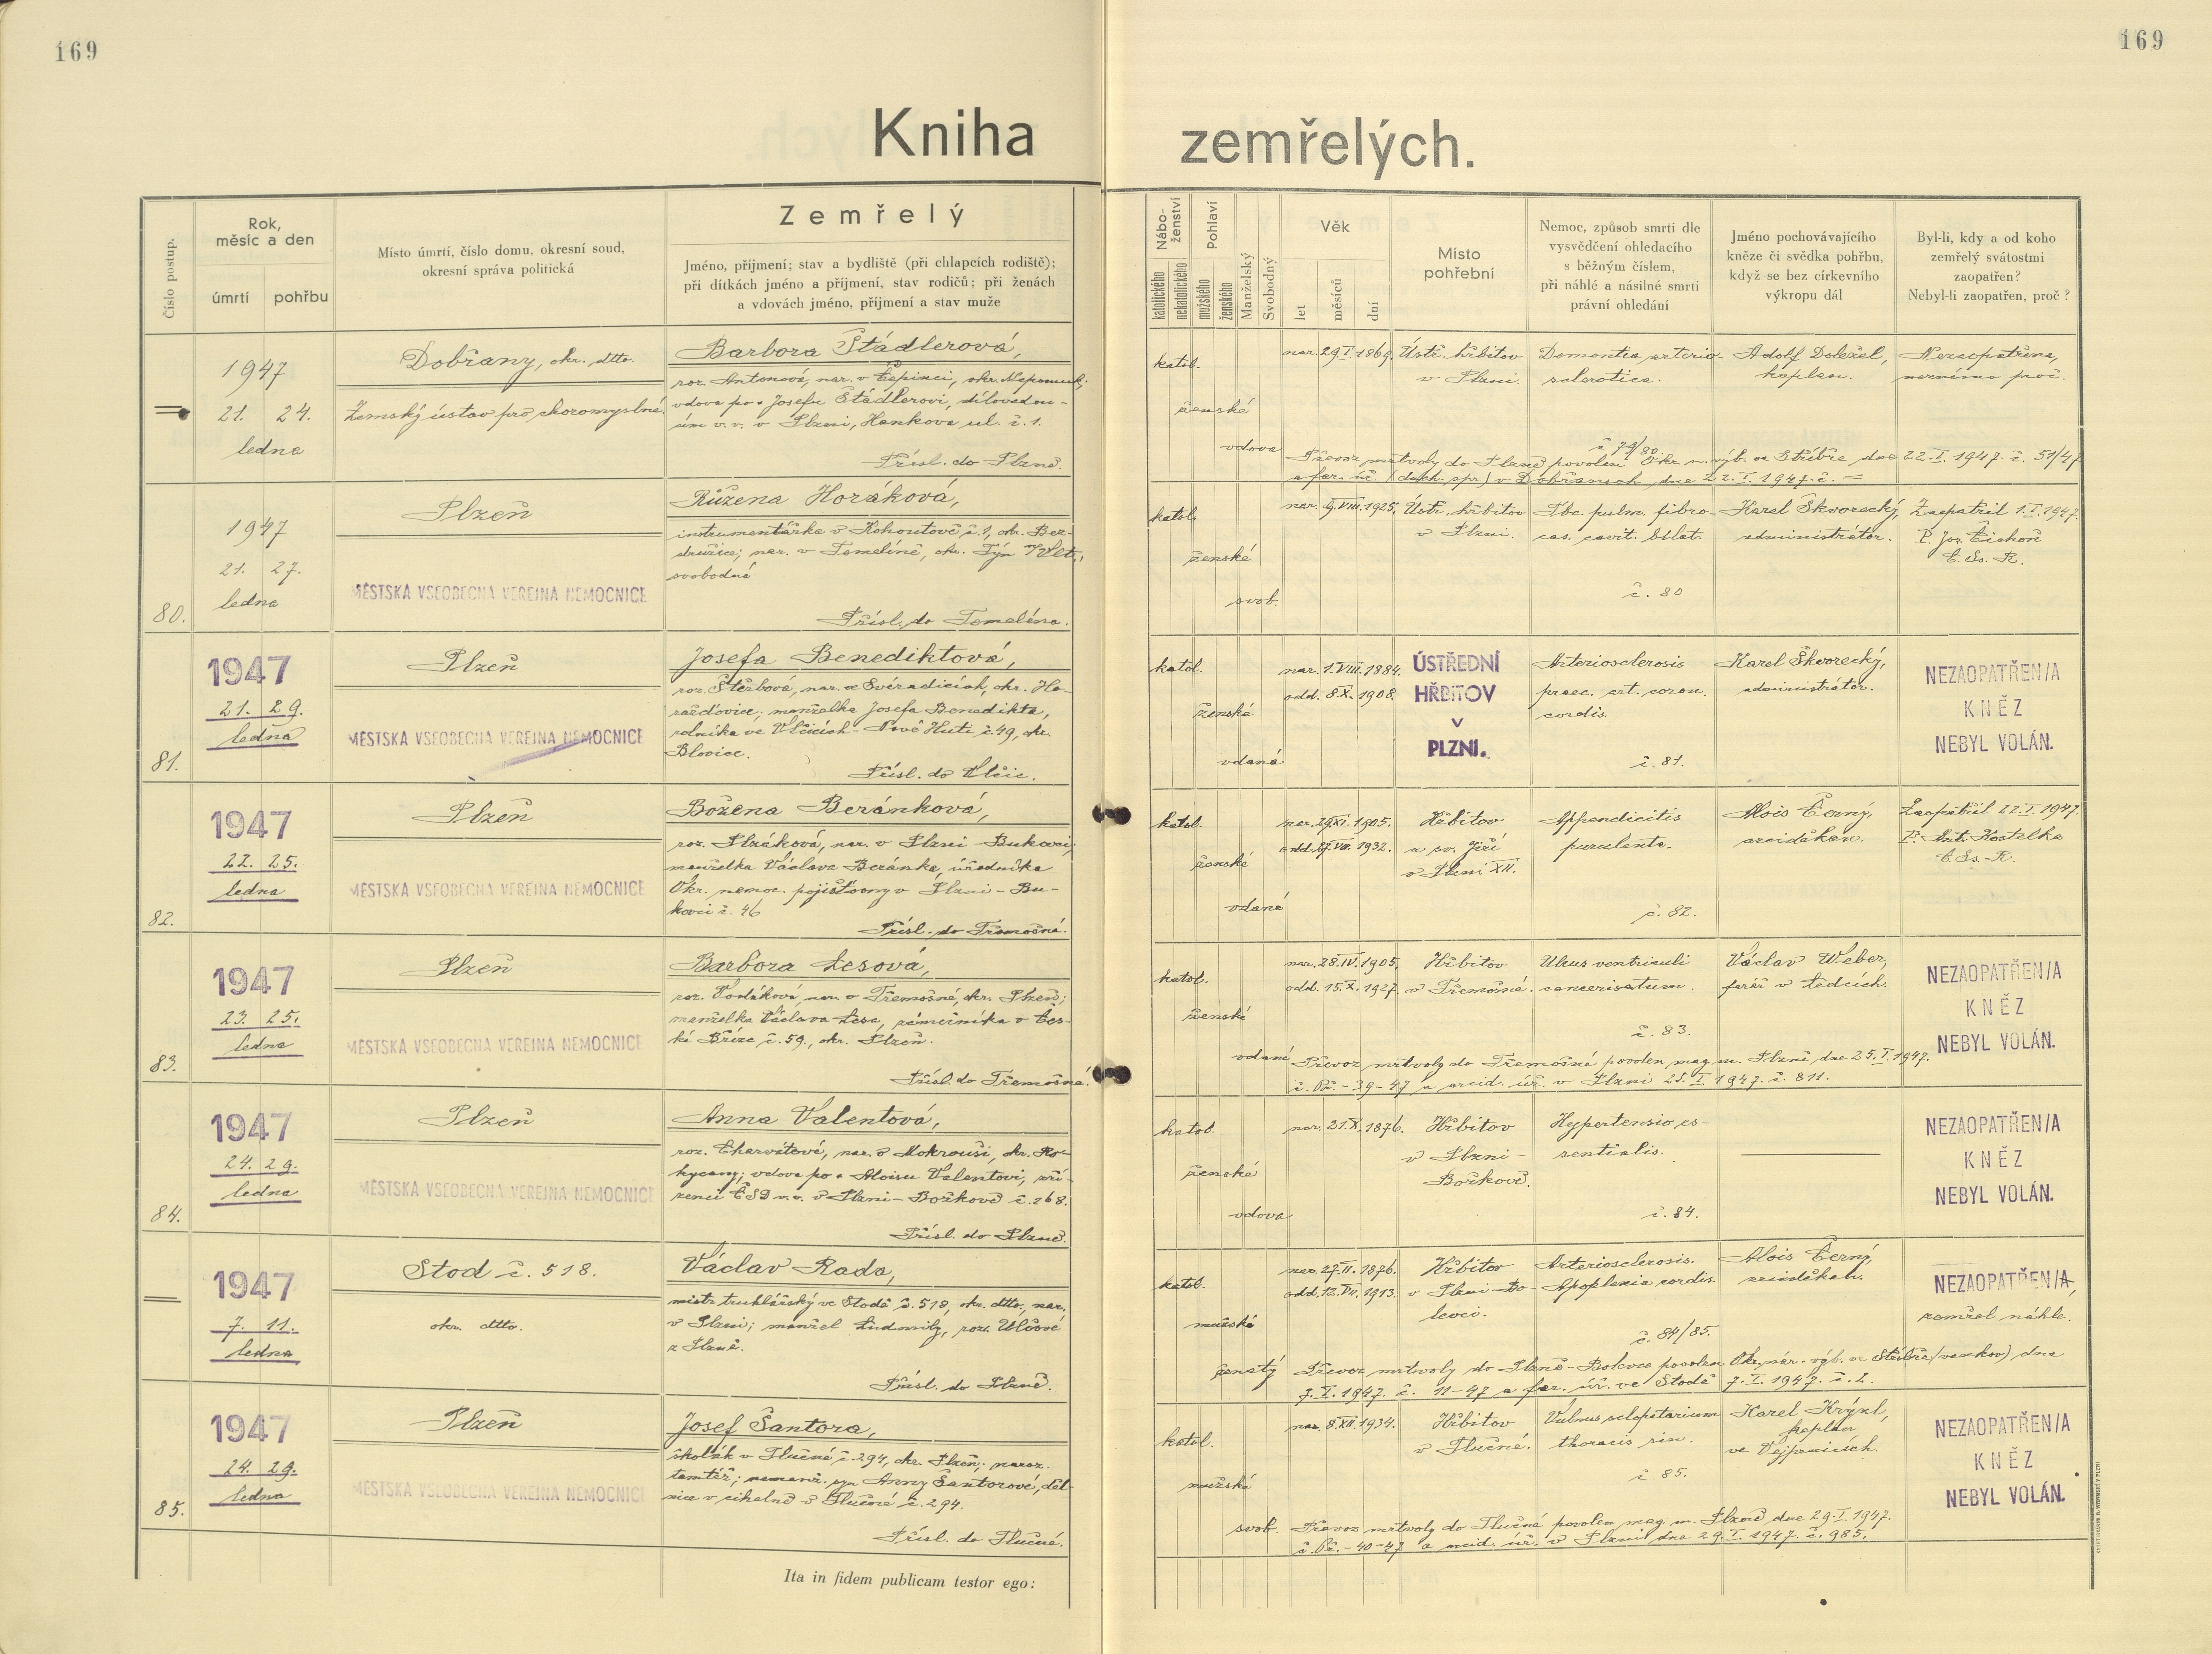 169
169
Kniha zemřelých.
Číslo postup.
Rok,
měsíc a den
úmrtí
pohřbu
Místo úmrtí, číslo domu, okresní soud,
okresní správa politická
Zemřelý
Jméno, příjmení; stav a bydliště (při chlapcích rodiště);
při dítkách jméno a příjmení, stav rodičů; při ženách
a vdovách jméno, příjmení a stav muže
Nábo-
ženství
katolického
nekatolického
Pohlaví
mužského
ženského
Manželský
Svobodný
Věk
let
měsíců
dní
Místo
pohřební
Nemoc, způsob smrti dle
vysvědčení ohledacího
s běžným číslem,
při náhlé a násilné smrti
právní ohledání
Jméno pochovávajícího
kněze či svědka pohřbu,
když se bez církevního
výkropu dál
Byl-li, kdy a od koho
zemřelý svátostmi
zaopatřen?
Nebyl-li zaopatřen, proč?
1947
21. 24.
ledna
Dobřany, okr. dtto.
Zemský ústav pro choromyslné.
Barbora Štádlerová,
roz. Antonová, nar. v Čepinci, okr. Nepomuk;
vdova po + Josefu Štádlerovi, dílovedou-
cím v. v. v Plzni, Hankova ul. č. 1.
Přísl. do Plzně.
katol.
ženské
vdova
nar. 29.I.1869.
Ústř. hřbitov
v Plzni.
Dementia arterio-
sclerotica.
č 79/80.
Adolf Doležel,
kaplan.
Nezaopatřena,
neznámo proč.
Převoz mrtvoly do Plzně povolen Okr. n. výb. ve Stříbře dne 22.I. 1947. č. 51/47
a far. úř. (duch. spr.) v Dobřanech dne 22.I.1947. č. —
80.
1947
21. 27.
ledna
Plzeň
MĚSTSKÁ VŠEOBECNÁ VEŘEJNÁ NEMOCNICE
Růžena Horáková,
instrumentářka v Kohoutově č. 1, okr. Bez-
družice; nar. v Temelíně, okr. Týn n/Vlt.,
svobodná
Přísl. do Temelína.
katol.
ženské
svob.
nar. 9.VIII.1925.
Ústř. hřbitov
v Plzni.
Tbc. pulm. fibro-
cas. cavit. bilat.
č. 80
Karel Škvorecký,
administrátor.
Zaopatřil 1.I.1947.
P. Jos. Čichoň
C. Ss. R.
81.
1947
21. 29.
ledna
Plzeň
MĚSTSKÁ VŠEOBECNÁ VEŘEJNÁ NEMOCNICE
Josefa Benediktová,
roz. Štěrbová, nar. ve Svéradicích, okr. Ho-
ražďovice; manželka Josefa Benedikta,
rolníka ve Vlčicích - Nové Huti č. 49, okr.
Blovice.
Přísl. do Vlčic.
katol.
ženské
vdaná
nar. 1.VIII.1884.
odd. 8.X.1908.
ÚSTŘEDNÍ
HŘBITOV
V
PLZNI.
Arteriosclerosis
praec. art. coron.
cordis.
č. 81.
Karel Škvorecký,
administrátor.
NEZAOPATŘEN/A
KNĚZ
NEBYL VOLÁN.
82.
1947
22. 25.
ledna
Plzeň
MĚSTSKÁ VŠEOBECNÁ VEŘEJNÁ NEMOCNICE
Božena Beránková,
roz. Plzáková, nar. v Plzni - Bukovci,
manželka Václava Beránka, úředníka
Okr. nemoc. pojišťovny v Plzni - Bu-
kovci č. 46
Přísl. do Třemošné.
katol.
ženské
vdaná
nar. 29.XI.1905.
odd. 27.VIII.1932.
Hřbitov
u sv. Jiří
v Plzni XII.
Appendicitis
purulenta.
č. 82.
Alois Černý,
arciděkan.
Zaopatřil 22.I.1947.
P. Ant. Kostelka
C. Ss. R.
83.
1947
23. 25.
ledna
Plzeň
MĚSTSKÁ VŠEOBECNÁ VEŘEJNÁ NEMOCNICE
Barbora Lesová,
roz. Vodáková, nar. v Třemošné, okr. Plzeň;
manželka Václava Lesa, zámečníka v Čes-
ké Bříze č. 59., okr. Plzeň.
Přísl. do Třemošné.
katol.
ženské
vdaná
nar. 28.IV.1905.
odd. 15.X.1927.
Hřbitov
v Třemošné.
Ulcus ventriculi
cancerisatum.
č. 83.
Václav Weber,
farář v Ledcích.
NEZAOPATŘEN/A
KNĚZ
NEBYL VOLÁN.
Převoz mrtvoly do Třemošné povolen mag. m. Plzně dne 25.I.1947.
č. Př. - 39 - 47 a arcid. úř. v Plzni 25.I.1947. č. 811.
84.
1947
24. 29.
ledna
Plzeň
MĚSTSKÁ VŠEOBECNÁ VEŘEJNÁ NEMOCNICE
Anna Valentová,
roz. Charvátová, nar. v Mokrouši, okr. Ro-
kycany; vdova po + Aloisu Valentovi, zří-
zenci ČSD v. v. v Plzni - Božkově č. 268.
Přísl. do Plzně.
katol.
ženské
vdova
nar. 21.X.1876.
Hřbitov
v Plzni -
Božkově.
Hypertensio es-
sentialis.
č. 84.
NEZAOPATŘEN/A
KNĚZ
NEBYL VOLÁN.
1947
7. 11.
ledna
Stod č. 518.
okr. dtto.
Václav Rada,
mistr truhlářský ve Stodě č. 518, okr. dtto., nar.
v Plzni; manžel Ludmily, roz. Ulčové
z Plzně.
Přísl. do Plzně.
katol.
mužské
ženatý
nar. 27.II.1876.
odd. 12.VII.1913.
Hřbitov
v Plzni - Bo-
levci.
Arteriosclerosis.
Apoplexia cordis.
č. 84/85.
Alois Černý,
arciděkan.
NEZAOPATŘEN/A,
zemřel náhle.
Převoz mrtvoly do Plzně - Bolevce povolen Okr. nár. výb. ve Stříbře (venkov) dne
7.I.1947. č. 11-47 a far. úř. ve Stodě 7.I.1947. č. 2.
85.
1947
24. 29.
ledna
Plzeň
MĚSTSKÁ VŠEOBECNÁ VEŘEJNÁ NEMOCNICE
Josef Šantora,
školák v Tlučné č. 294, okr. Plzeň; naroz.
tamtéž; nemanž. syn Anny Šantorové, děl-
nice v cihelně v Tlučné č. 294.
Přísl. do Tlučné.
katol.
mužské
svob.
nar. 8.XII.1934.
Hřbitov
v Tlučné.
Vulnus sclopetarium
thoracis sin.
č. 85.
Karel Krýzl,
kaplan
ve Vejprnicích.
NEZAOPATŘEN/A
KNĚZ
NEBYL VOLÁN.
Převoz mrtvoly do Tlučné povolen mag. m. Plzně dne 29.I.1947.
č. Př. - 40-47 a arcid. úř. v Plzni dne 29.I.1947. č. 985.
Ita in fidem publicam testor ego: